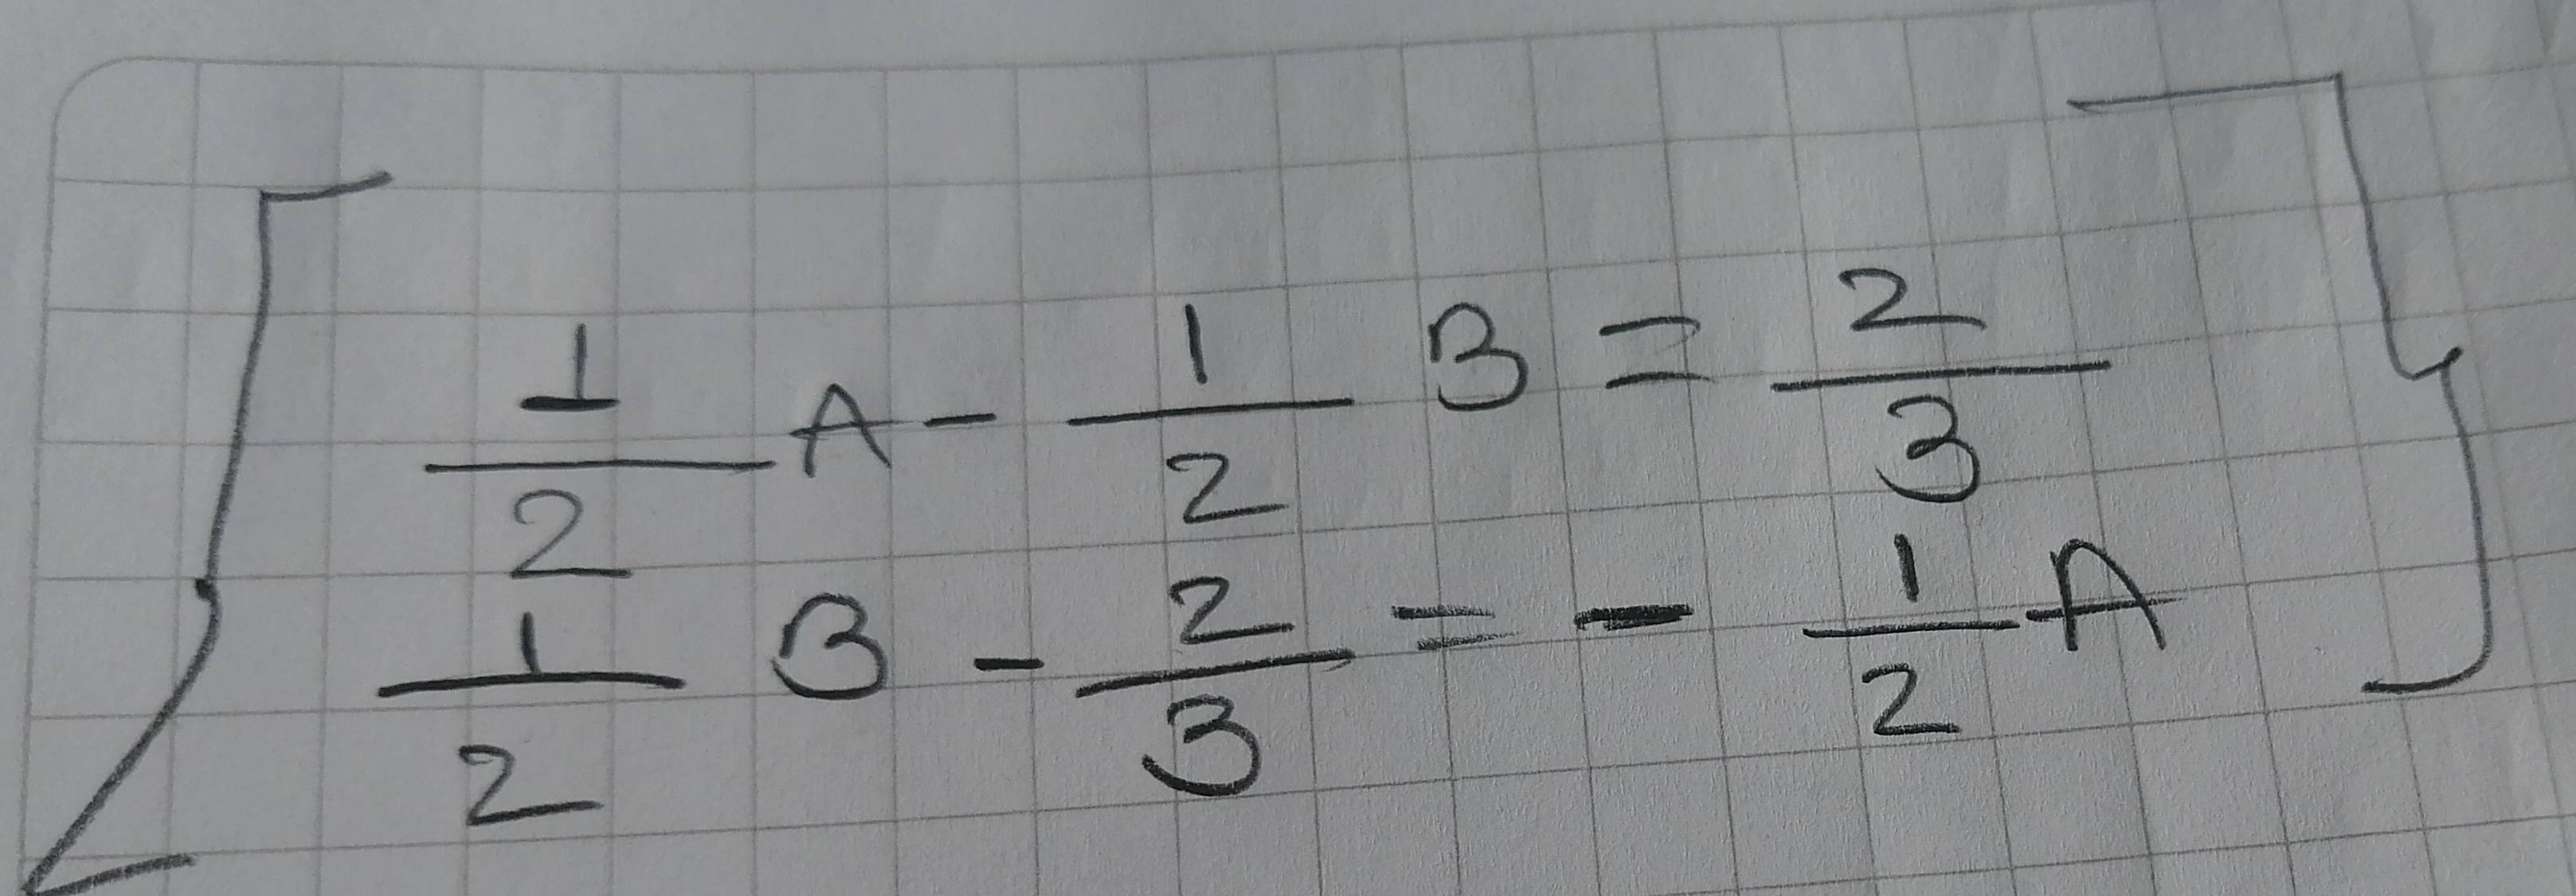 1/2 A - 1/2 B = 2/3
1/2 B - 2/3 = - 1/2 A